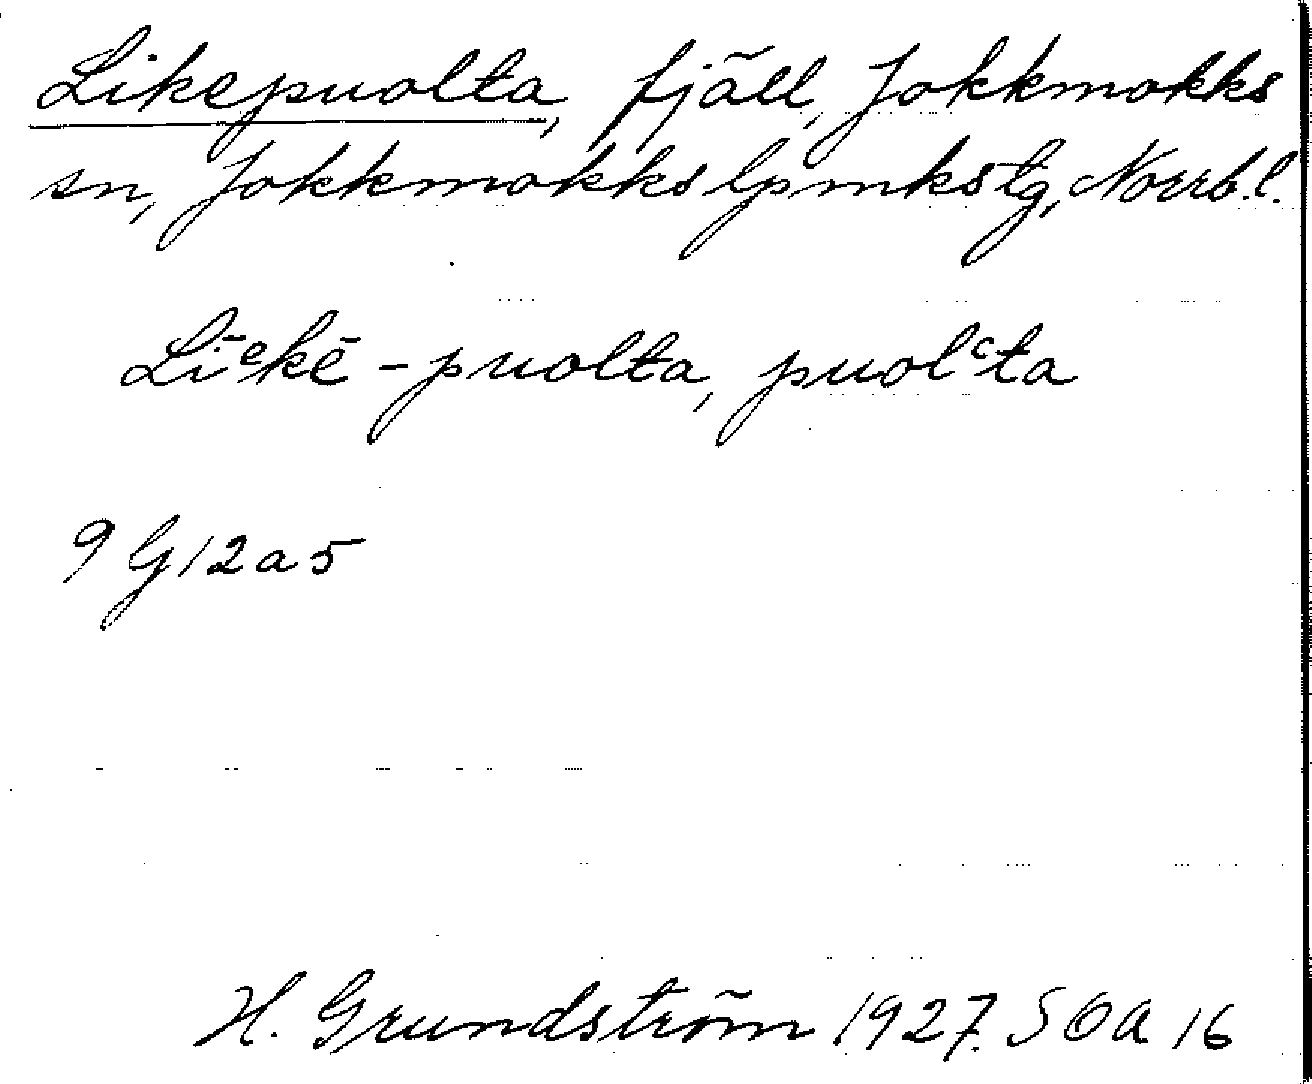 Likepuolta, fjäll, Jokkmokks
sn, Jokkmokks lpmkstg, Norrb.l.
Lī̭ᵉkē-puolta, puolʿta
9 G 12 a 5
H. Grundström 1927. SOA 16